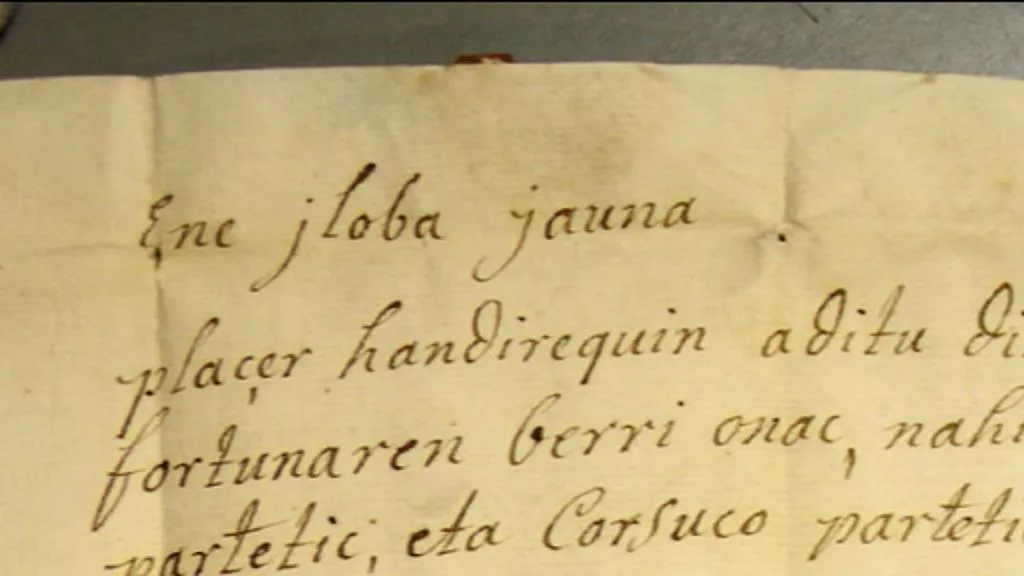 Ene jloba jauna
plaçer handirequin aditu di
fortunaren berri onac, nahi
partetic, eta Corsuco parteti